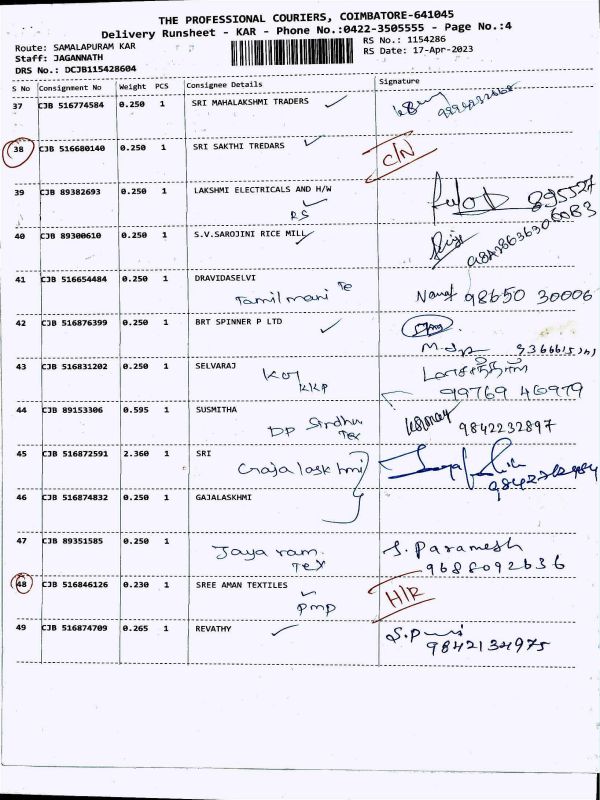 THE PROFESSIONAL COURIERS, COIMBATORE-641045
Delivery Runsheet - KAR - Phone No.:0422-3505555 - Page No.:4
Route: SAMALAPURAM KAR
RS No.: 1154286
Staff: JAGANNATH
RS Date: 17-Apr-2023
DRS No.: DCJB115428604
S No Consignment No Weight PCS Consignee Details Signature
37 CJB 516774584 0.250 1 SRI MAHALAKSHMI TRADERS
38 CJB 516680140 0.250 1 SRI SAKTHI TREDARS C/N
39 CJB 89382693 0.250 1 LAKSHMI ELECTRICALS AND H/W
RS
40 CJB 89300610 0.250 1 S.V.SAROJINI RICE MILL
41 CJB 516654484 0.250 1 DRAVIDASELVI
Tamilmani Te 98650 30006
42 CJB 516876399 0.250 1 BRT SPINNER P LTD
43 CJB 516831202 0.250 1 SELVARAJ
KKP 99769 46979
44 CJB 89153306 0.595 1 SUSMITHA
DP Sindhu Tex 9842232897
45 CJB 516872591 2.360 1 SRI
Gajalaskhmi
46 CJB 516874832 0.250 1 GAJALASKHMI
47 CJB 89351585 0.250 1
Jayaram Tex S. Paramesh
9688092636
48 CJB 516846126 0.230 1 SREE AMAN TEXTILES H/R
pmp
49 CJB 516874709 0.265 1 REVATHY
9842134975